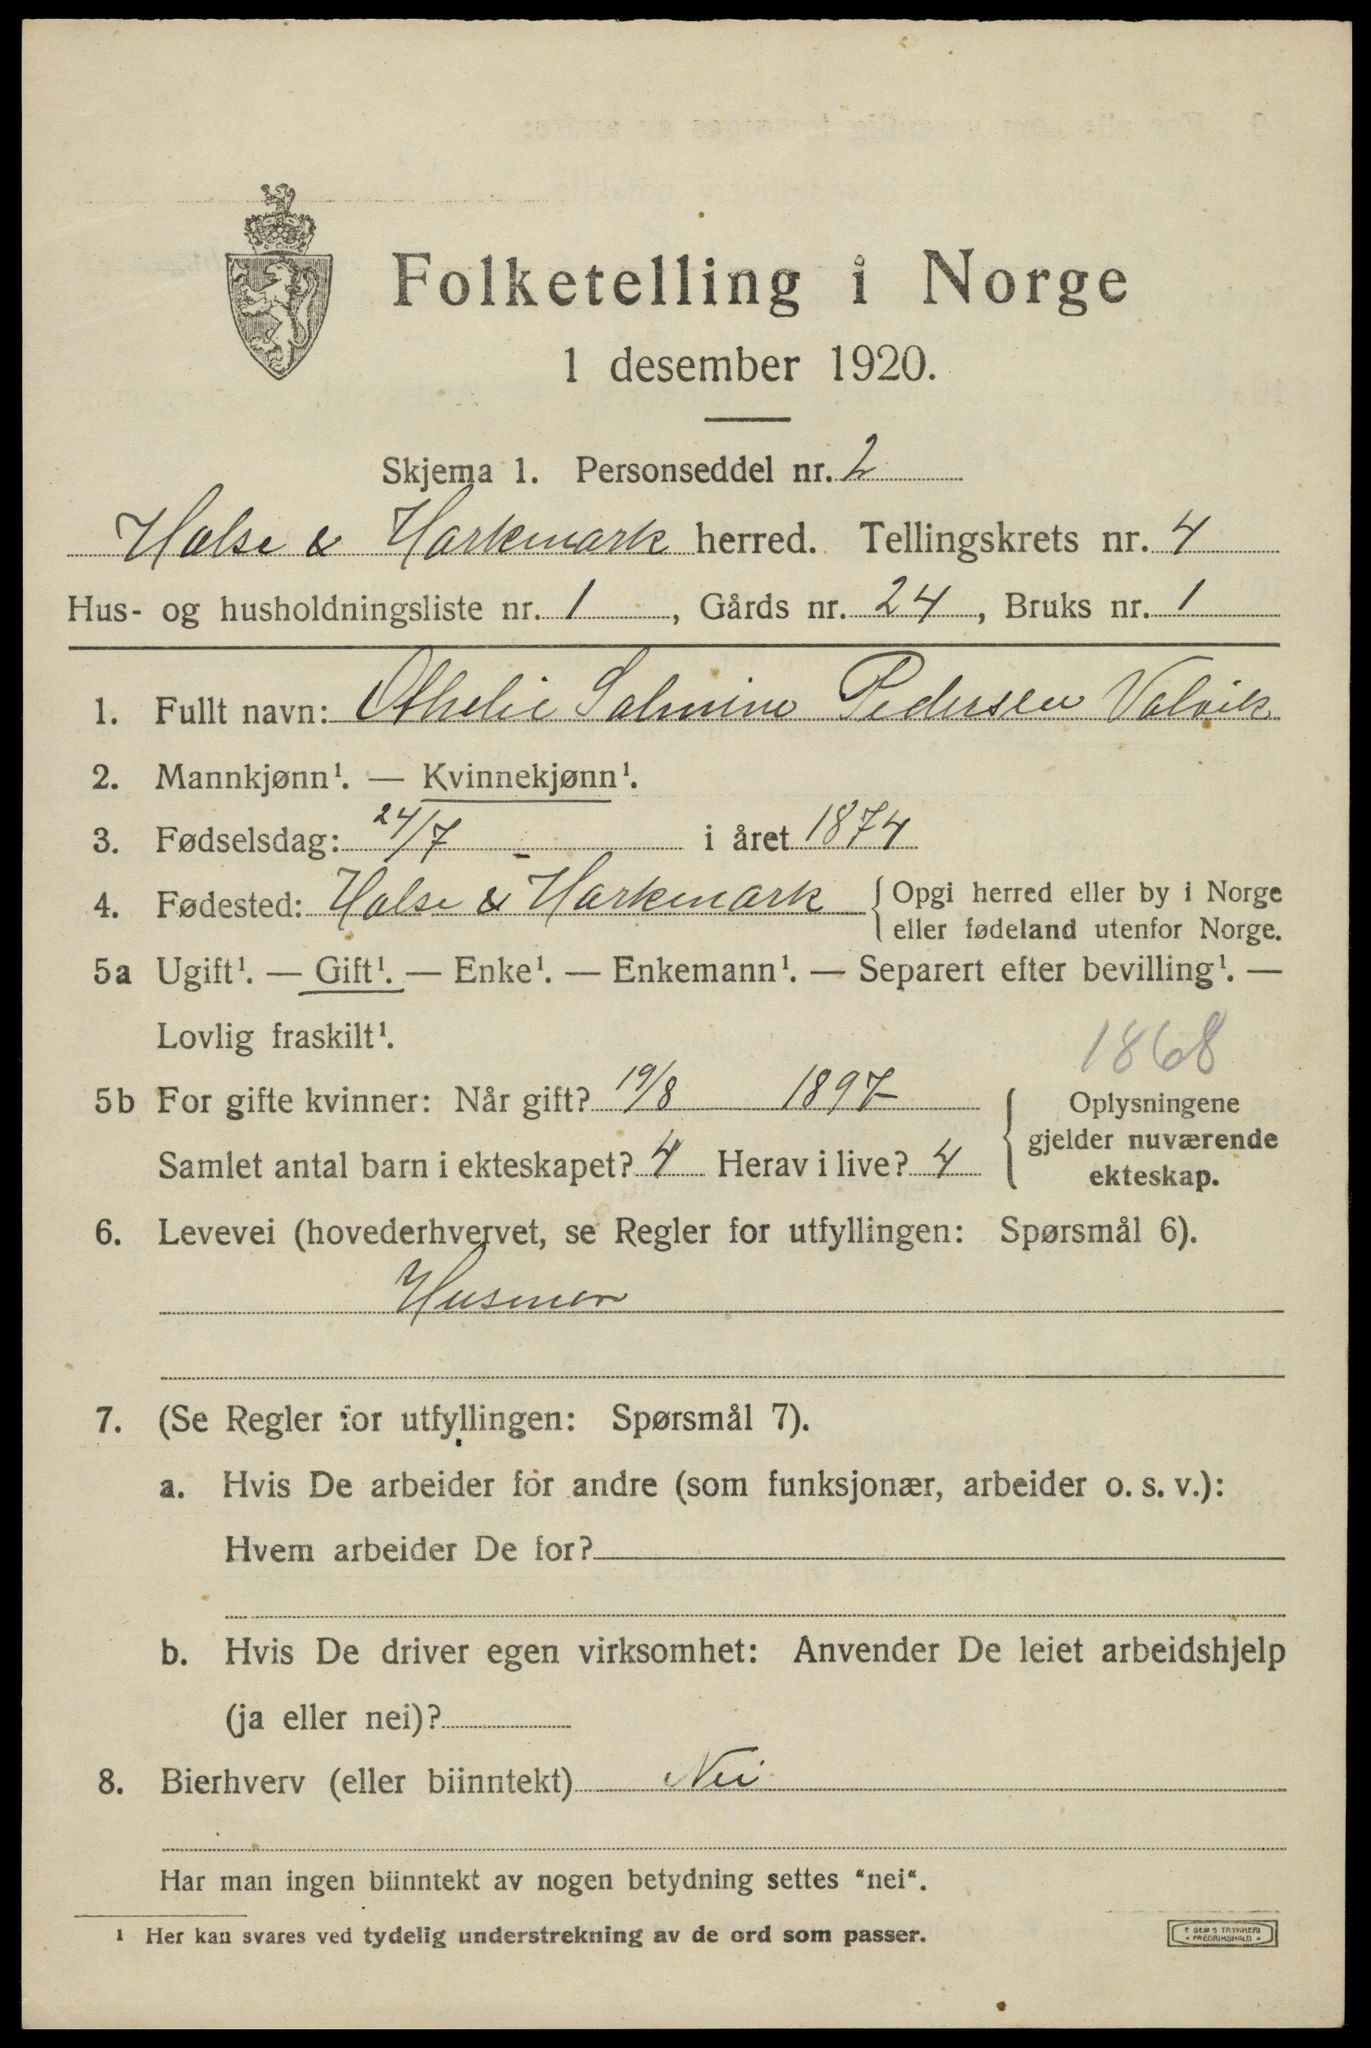 Folketelling i Norge
1 desember 1920.
Skjema 1. Personseddel nr. 2
Halse & Harkmark herred. Tellingskrets nr. 4
Hus- og husholdningsliste nr. 1, Gårds nr. 24, Bruks nr. 1
1. Fullt navn: Othelie Salmine Pedersen Valvik
2. Mannkjønn¹. — Kvinnekjønn¹.
3. Fødselsdag: 24/7 i året 1874
4. Fødested: Halse & Harkmark { Opgi herred eller by i Norge
eller fødeland utenfor Norge.
5a Ugift¹. — Gift¹. — Enke¹. — Enkemann¹. — Separert efter bevilling¹. —
Lovlig fraskilt¹.
1868
5b For gifte kvinner: Når gift? 19/8 1897
Samlet antal barn i ekteskapet? 4 Herav i live? 4
{ Oplysningene
gjelder nuværende
ekteskap.
6. Levevei (hovederhvervet, se Regler for utfyllingen: Spørsmål 6).
Husmor
7. (Se Regler for utfyllingen: Spørsmål 7).
a. Hvis De arbeider for andre (som funksjonær, arbeider o. s. v.):
Hvem arbeider De for?
b. Hvis De driver egen virksomhet: Anvender De leiet arbeidshjelp
(ja eller nei)?
8. Bierhverv (eller biinntekt) Nei
Har man ingen biinntekt av nogen betydning settes “nei“.
¹ Her kan svares ved tydelig understrekning av de ord som passer.
E SEM'S TRYKKERI
• FREDRIKSHALD •